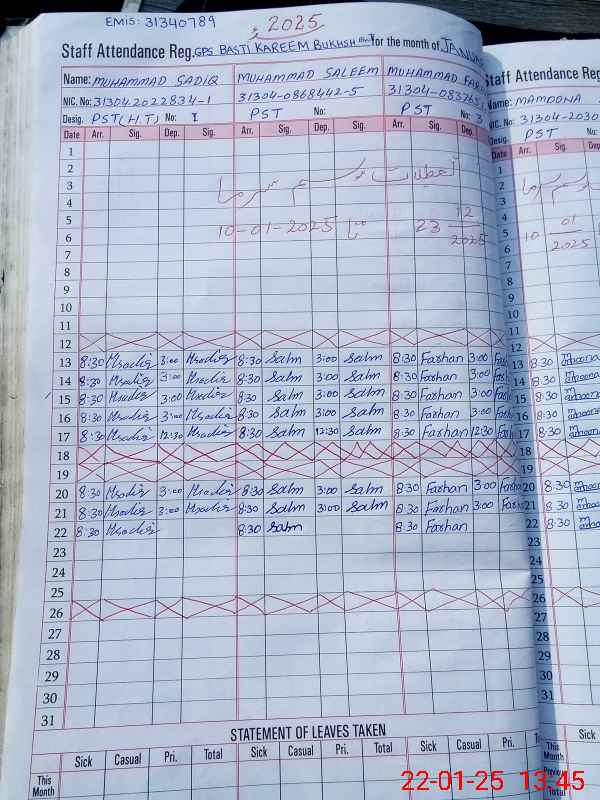 EMIS: 31340789
2025
Staff Attendance Reg. GPS BASTI KAREEM BUKHSH for the month of JANUAR
Name: MUHAMMAD SADIQ MUHAMMAD SALEEM MUHAMMAD FAR
NIC. No: 31304 2022834-1 31304-0868442-5 31304-0832651
Desig. PST (H.T) No: 1 PST No: PST No: 3
Date Arr. Sig. Dep. Sig. Arr. Sig. Dep. Sig. Arr. Sig. Dep.
1
2
3 تعطیلات موسم سرما
4
5 10-01-2025 تا 23 12 2025
6
7
8
9
10
11
12
13 8:30 Msadiq 3:00 Msadiq 8:30 Salm 3:00 Salm 8:30 Farhan 3:00 Far
14 8:30 Msadiq 3:00 Msadiq 8:30 Salm 3:00 Salm 8:30 Farhan 3:00 Far
15 8:30 Msadiq 3:00 Msadiq 8:30 Salm 3:00 Salm 8:30 Farhan 3:00 Far
16 8:30 Msadiq 3:00 Msadiq 8:30 Salm 3:00 Salm 8:30 Farhan 3:00 Far
17 8:30 Msadiq 12:30 Msadiq 8:30 Salm 12:30 Salm 8:30 Farhan 12:30 Far
18
19
20 8:30 Msadiq 3:00 Msadiq 8:30 Salm 3:00 Salm 8:30 Farhan 3:00 Farha
21 8:30 Msadiq 3:00 Msadiq 8:30 Salm 3:00 Salm 8:30 Farhan 3:00 Farha
22 8:30 Msadiq 8:30 Salm 8:30 Farhan
23
24
25
26
27
28
29
30
31
STATEMENT OF LEAVES TAKEN
Sick Casual Pri. Total Sick Casual Pri. Total Sick Casual Pri.
This Month
Staff Attendance Reg
Name: MAMOONA
NIC. No: 31304-2030
Desig. PST
Date Arr. Sig.
1
2
3
4
5 10 01 2025
6
7
8
9
10
11
12
13 8:30
14 8:30
15 8:30
16 8:30
17 8:30
18
19
20 8:30
21 8:30
22 8:30
23
24
25
26
27
28
29
30
31
Sick
This Month
Previous
Total
22-01-25 13:45